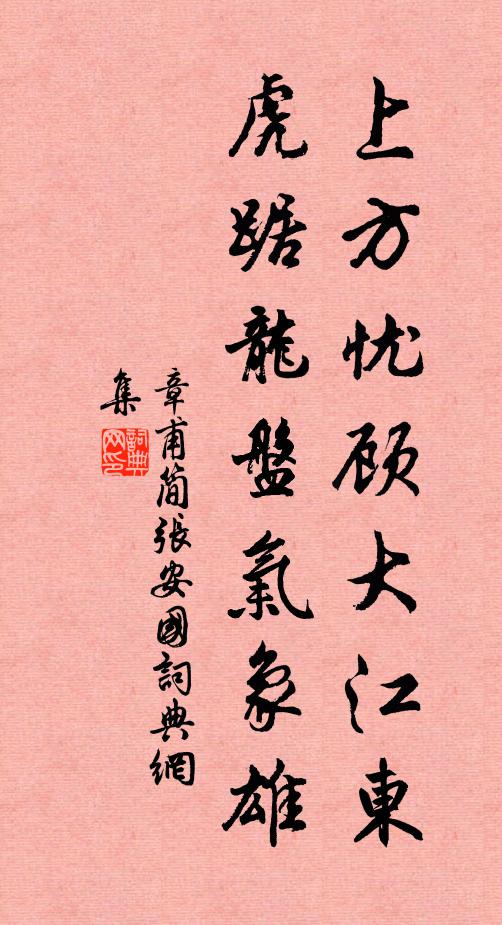 上方忧顾大江東
虎踞龍盤氣象雄
章甫简張安國詞典網
集
詞典网印